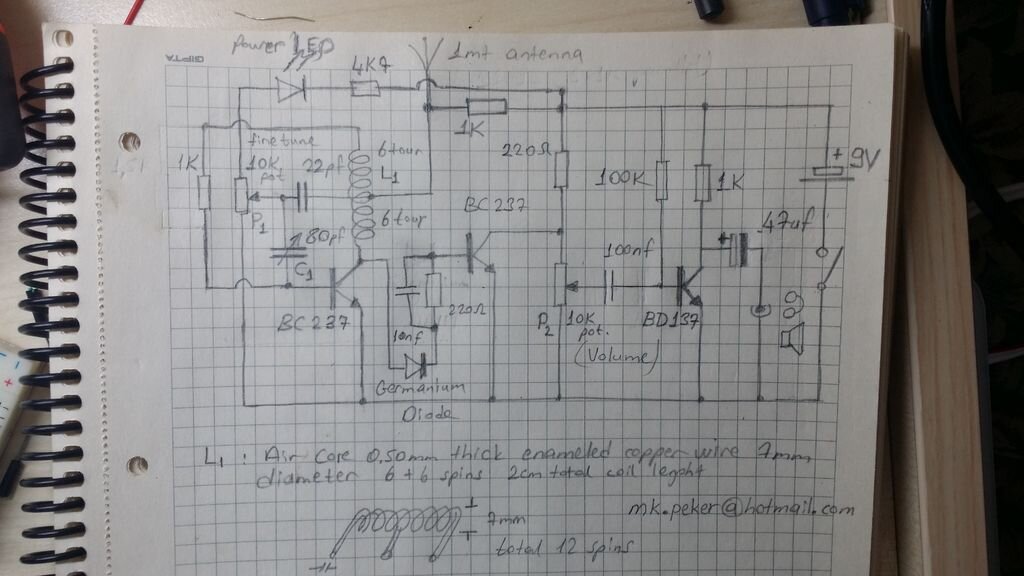 GIPTA
Power LED
4K7
1mt antenna
1K
finetune
10K
pot
P1
1K
22pf
6 tour
L1
6 tour
80pf
C1
BC237
10nf
220Ω
Germanium
Diode
BC237
220Ω
P2
10K
pot.
(Volume)
100nf
100K
1K
BD137
47uf
+
9V
+
L1 : Air Core 0,50mm thick enameled copper wire 7mm
diameter 6+6 spins 2cm total coil lenght
7mm
total 12 spins
mk.peker@hotmail.com